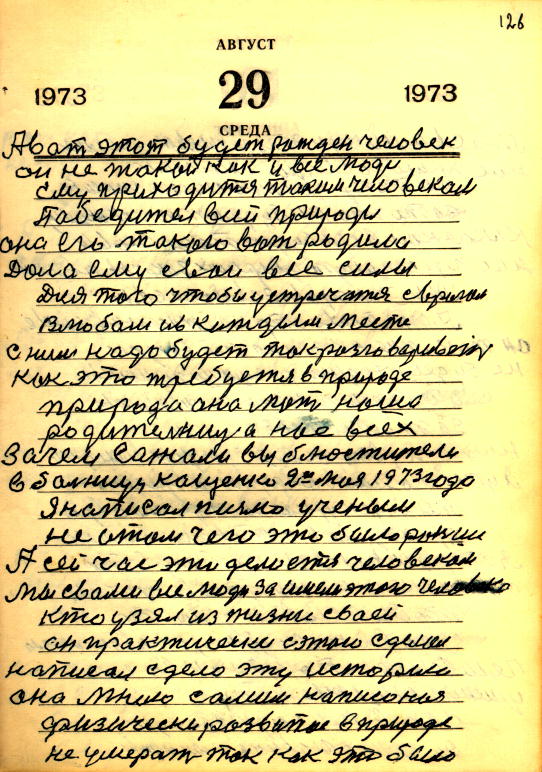 126
АВГУСТ
1973 29 1973
СРЕДА
А вот этот будет рожден человек
он не такой как и все люди
ему приходится таким человеком
Победител всей природы
она его такого вот родила
Дола ему свои все силы
Для того чтобы устречатя сврагом
Влюбом ив каждым месте
с ним надо будет так разговариват
как это требуется в природе
природа она мат наша
родителница нас всех
Зачем сажали вы блюстители
в Болницу Кащенко 2го мая 1973 года
Я написал писмо ученым
не отом чего это было раньши
А сей час это делается человеком
Мы свами все люди за имем этого человека
Кто узял из жизни своей
он практически сэтого сделал
написал сдело эту историю
она Мною самим написоная
физически развитое в природе
не умерат так как это было